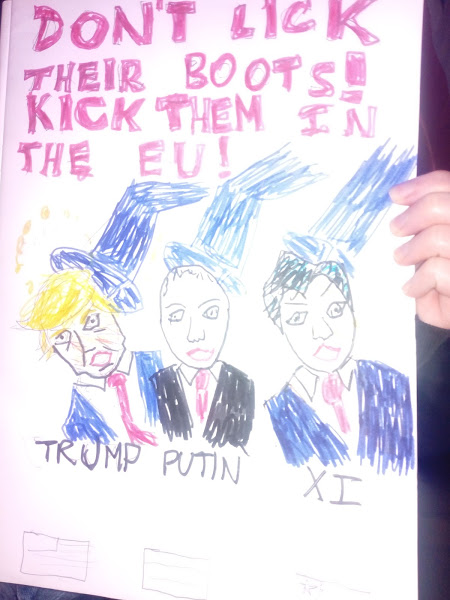 DON'T LICK
THEIR BOOTS!
KICK THEM IN
THE EU!
TRUMP PUTIN
XI